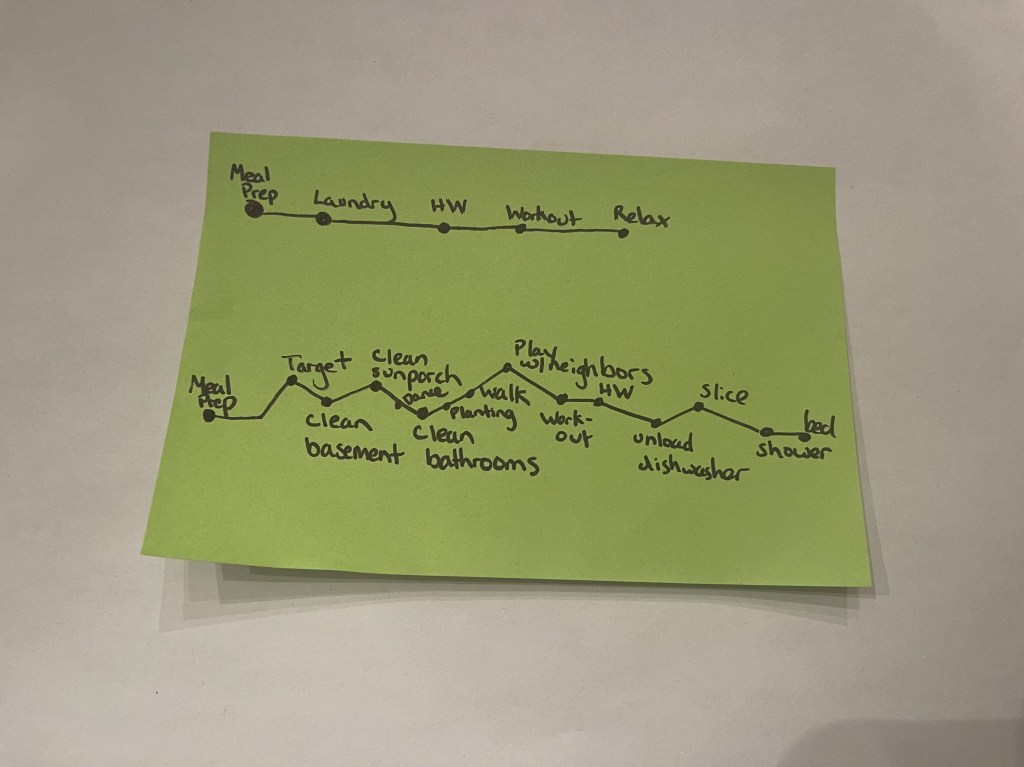 Meal
Prep
Laundry
HW
Workout
Relax
Meal
Prep
Target
clean
basement
clean
sunporch
clean
bathrooms
planting
walk
Play
w/neighbors
Work-
out
HW
unload
dishwasher
slice
shower
bed